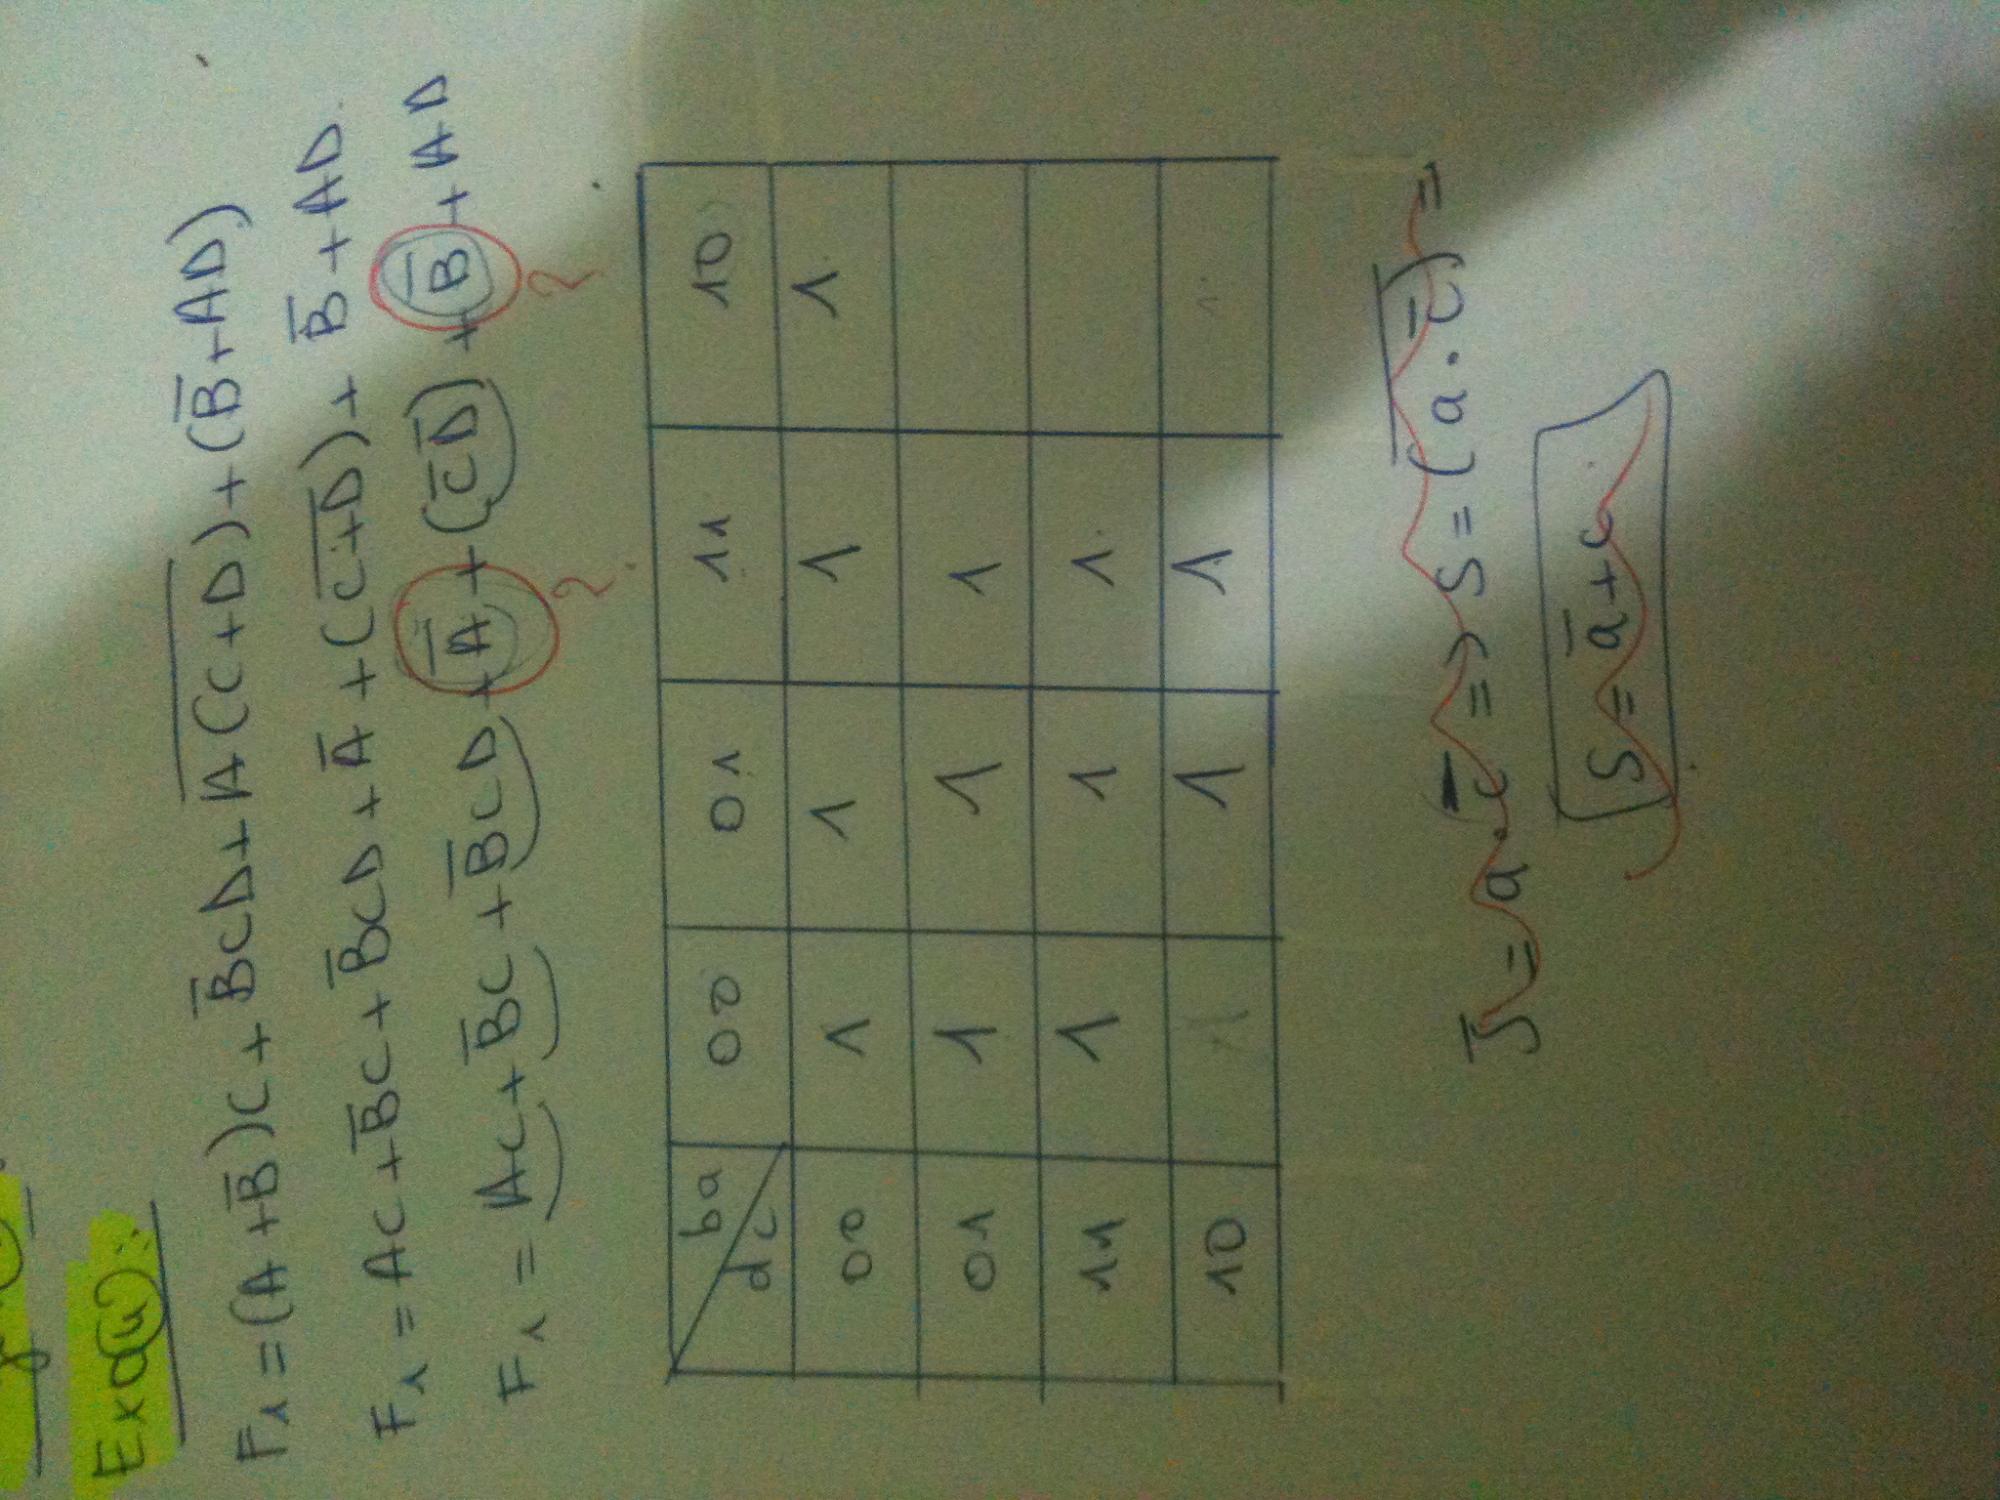 Exo(4):
F₁ = (A + B̅)C + B̅CD + \overline{A(C+D)} + (B̅ + AD)
F₁ = AC + B̅C + B̅CD + A̅ + (\overline{C+D}) + B̅ + AD.
F₁ = AC + B̅C + B̅CD + A̅ + (C̅D̅) + B̅ + AD
? ?
ba dc 00 01 11 10
00 1 1 1 1
01 1 1 1
11 1 1 1
10 1 1
S̅ = a.c̅ => S = (\overline{a.c̅}) =
S = a̅ + c